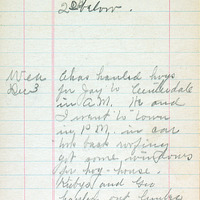 2° below.
Wed Chas hauled hogs
Dec 3 for Gay to Centerdale
in A.M. He and
I went to town
in P.M. in car
took back roofing
got some windows
for hog-house.
and Geo
out